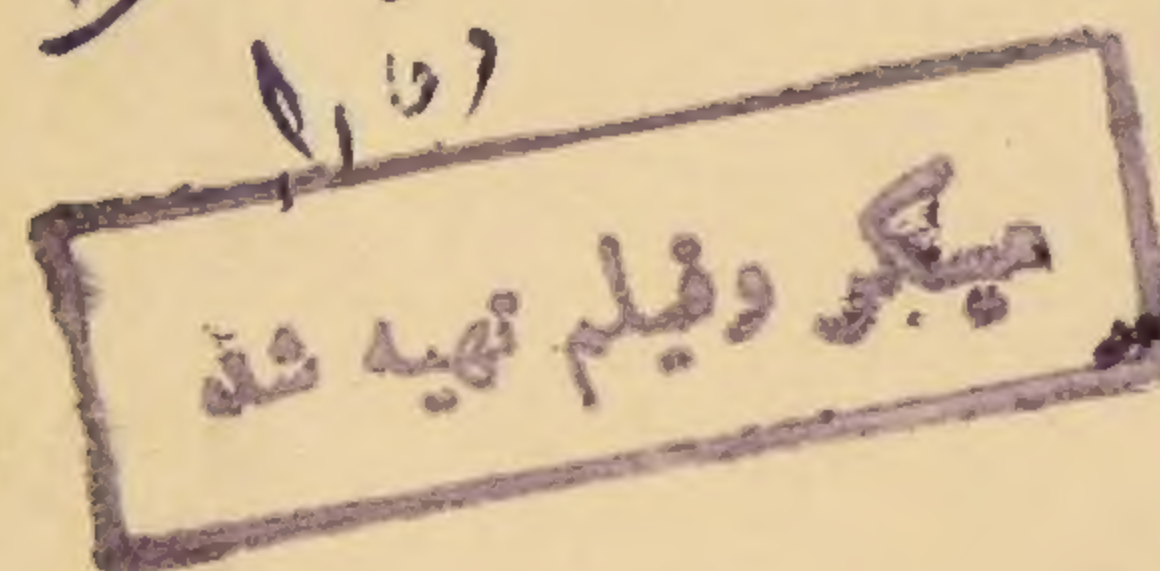 میکرو فیلم تهیه شد